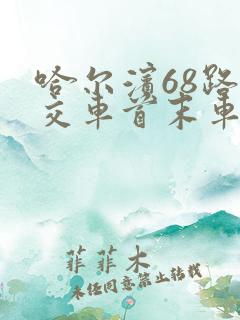 哈尔滨68路
交车首末车
菲菲木
未经同意禁止转载